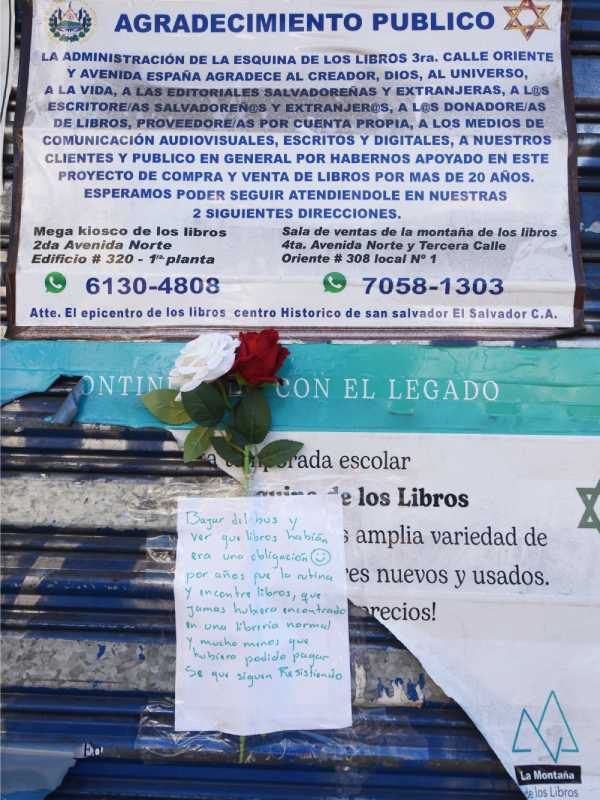 AGRADECIMIENTO PUBLICO
LA ADMINISTRACIÓN DE LA ESQUINA DE LOS LIBROS 3ra. CALLE ORIENTE
Y AVENIDA ESPAÑA AGRADECE AL CREADOR, DIOS, AL UNIVERSO,
A LA VIDA, A LAS EDITORIALES SALVADOREÑAS Y EXTRANJERAS, A L@S
ESCRITORE/AS SALVADOREÑ@S Y EXTRANJER@S, A L@S DONADORE/AS
DE LIBROS, PROVEEDORE/AS POR CUENTA PROPIA, A LOS MEDIOS DE
COMUNICACIÓN AUDIOVISUALES, ESCRITOS Y DIGITALES, A NUESTROS
CLIENTES Y PUBLICO EN GENERAL POR HABERNOS APOYADO EN ESTE
PROYECTO DE COMPRA Y VENTA DE LIBROS POR MAS DE 20 AÑOS.
ESPERAMOS PODER SEGUIR ATENDIENDOLE EN NUESTRAS
2 SIGUIENTES DIRECCIONES.
Mega kiosco de los libros
2da Avenida Norte
Edificio # 320 - 1ra planta
6130-4808
Sala de ventas de la montaña de los libros
4ta. Avenida Norte y Tercera Calle
Oriente # 308 local Nº 1
7058-1303
Atte. El epicentro de los libros centro Historico de san salvador El Salvador C.A.
CON EL LEGADO
temporada escolar
de los Libros
amplia variedad de
nuevos y usados.
precios!
Bajar del bus y
ver que libros habían
era una obligación
por años fue la rutina
y encontre libros, que
jamas hubiera encontrado
en una librería normal
y mucho menos que
hubiera podido pagar
Se que siguen Resistiendo
La Montaña
de los Libros